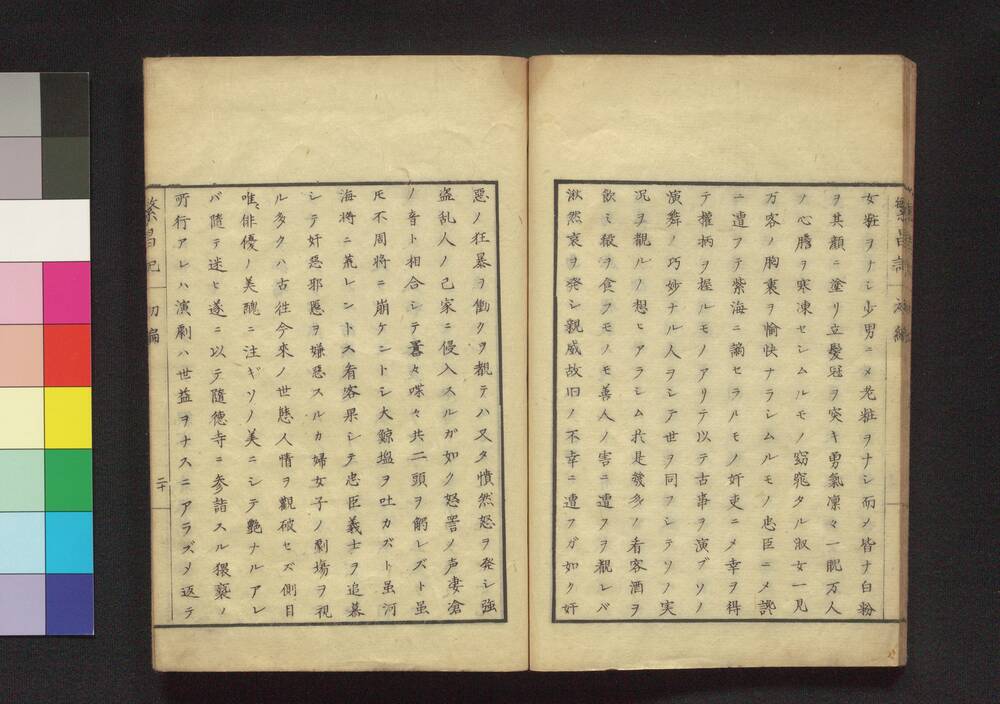 女粧ヲナシ少男ニメ老粧ヲナシ而メ皆ナ白粉
ヲ其顔ニ塗リ立髪冠ヲ突キ勇氣凛々一睨万人
ノ心膽ヲ寒凍セシムルモノ窈窕タル淑女一見
万客ノ胸裏ヲ愉快ナラシムルモノ忠臣ニメ讒
ニ遭フテ紫海ニ謫セラルモノ奸吏ニメ幸ヲ得
テ權柄ヲ握ルモノアリテ以テ古事ヲ演ブソノ
演舞ノ巧妙ナル人ヲシテ世ヲ同フシテソノ実
况ヲ觀ルノ想ヒアラシム於是幾多ノ看客酒ヲ
飲ミ殽ヲ食フモノモ善人ノ害ニ遭フヲ觀レバ
愀然哀ヲ発シ親戚故旧ノ不幸ニ遭フガ如ク奸
惡ノ狂暴ヲ働クヲ觀テハ又タ憤然怒ヲ発シ強
盗乱人ノ己家ニ侵入スルガ如ク怒詈メ声凄滄
ノ音ト相合シテ囂々喋々共二頭ヲ觸レズト虽
𪜈不周將ニ崩ケントシ大鯨塩ヲ吐カズト虽河
海将ニ荒レントス看客果シテ忠臣義士ヲ追慕
シテ奸惡邪慝ヲ嫌惡スルカ婦女子ノ劇場ヲ視
ル多クハ古徃今來ノ世態人情ヲ觀破セズ側目
唯俳優ノ美醜ニ注ギソノ美ニシテ艶ナルアレ
バ隨テ迷ヒ遂ニ以テ隨徳寺ニ参詣スル猥褻ノ
所行アレハ演劇ハ世益ヲナスニアラズメ返テ
繁昌記 初編 二十